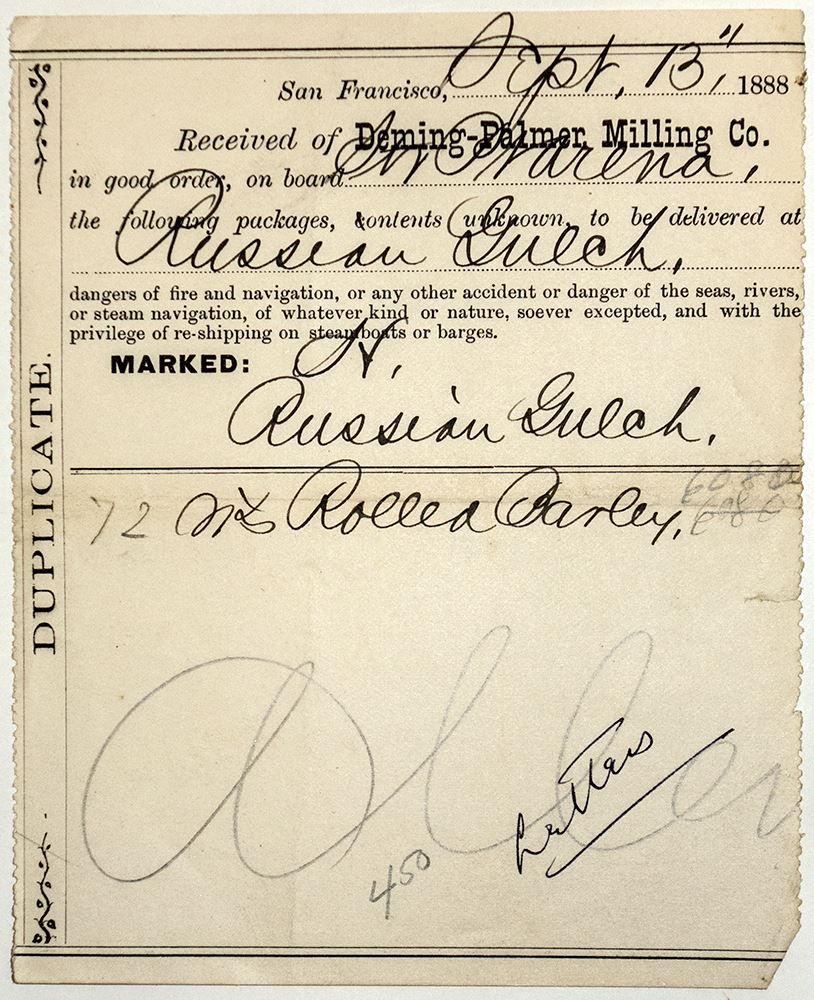 San Francisco, Sept. 13", 1888
Received of Deming-Palmer Milling Co.
in good order, on board Str Pt Arena,
the following packages, contents unknown, to be delivered at
Russian Gulch,
dangers of fire and navigation, or any other accident or danger of the seas, rivers,
or steam navigation, of whatever kind or nature, soever excepted, and with the
privilege of re-shipping on steamboats or barges.
MARKED: H,
Russian Gulch.
72 sks Rolled Barley,
6080
450
DUPLICATE.